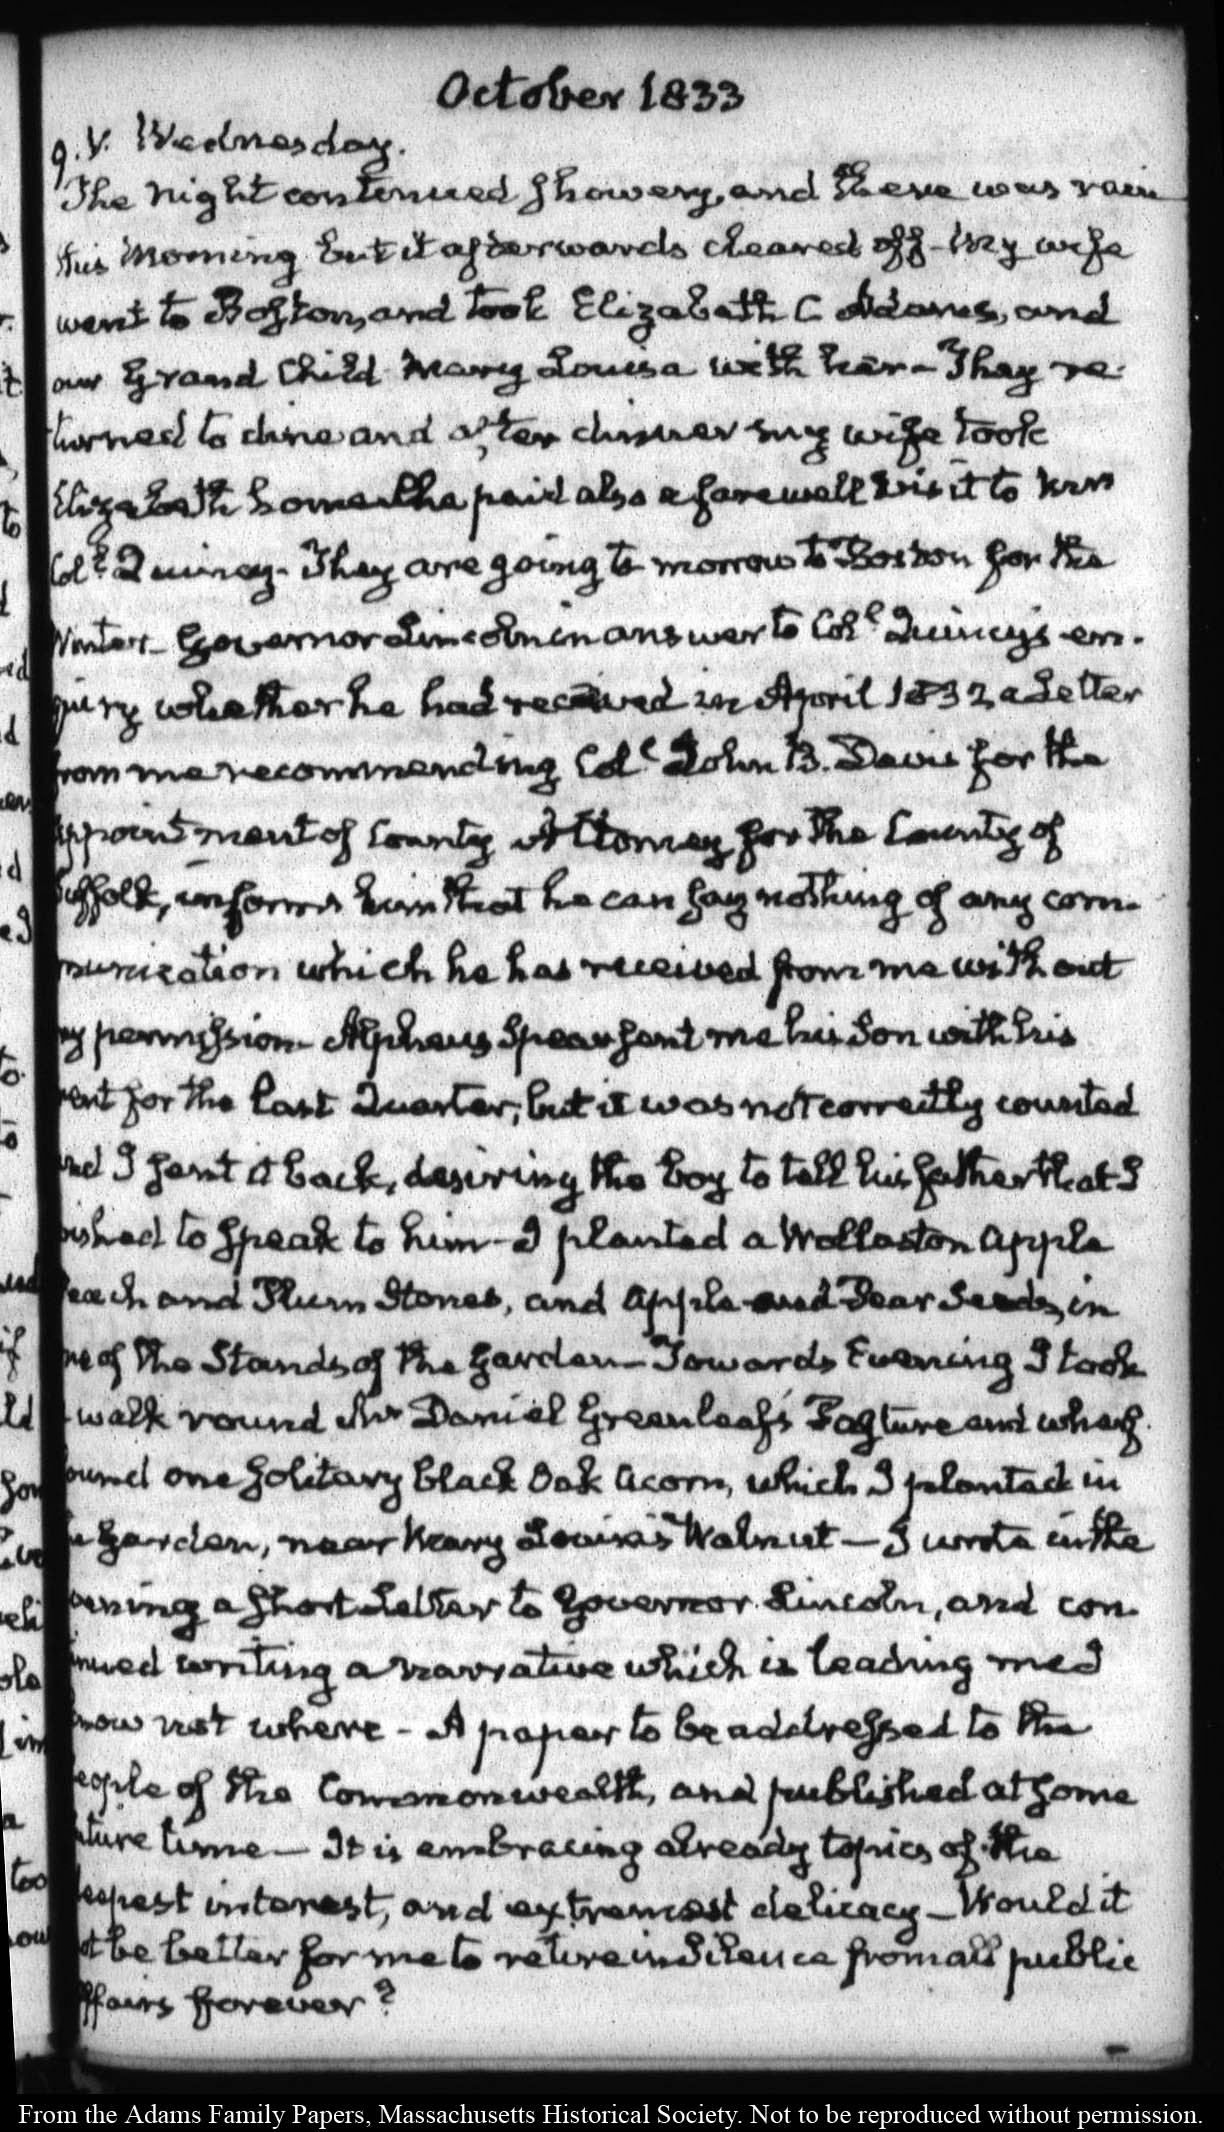 October 1833
9. V. Wednesday.
The night continued showery, and there was rain
this morning but it afterwards cleared off - My wife
went to Boston, and took Elizabeth C Adams, and
our Grand Child Mary Louisa with her - They re-
turned to dine and after dinner my wife took
Elizabeth home she paid also a farewell visit to Mrs
Coll. Quincy. They are going to morrow to Boston for the
Winter - Governor Lincoln in answer to Coll. Quincy's en-
quiry whether he had received in April 1832 a Letter
from me recommending Coll. John B. Davis for the
appointment of County Attorney for the County of
Suffolk, informs him that he can say nothing of any com-
munication which he has received from me without
my permission - Alpheus Spear sent me his Son with his
rent for the last Quarter; but it was not correctly counted
and I sent it back, desiring the boy to tell his father that I
wished to speak to him - I planted a Wollaston Apple
Peach and Plum Stones, and Apple and Pear Seeds, in
one of the Stands of the garden - Towards Evening I took
a walk round Mr Daniel Greenleaf's Pasture and wharf.
found one solitary black Oak acorn, which I planted in
the garden, near Mary Louisa's Walnut — I wrote in the
evening a short Letter to Governor Lincoln, and con-
tinued writing a narrative which is leading me I
know not where - A paper to be addressed to the
people of the Commonwealth, and published at some
future time — It is embracing already topics of the
deepest interest, and extremest delicacy - Would it
not be better for me to retire in Silence from all public
affairs forever?
From the Adams Family Papers, Massachusetts Historical Society. Not to be reproduced without permission.